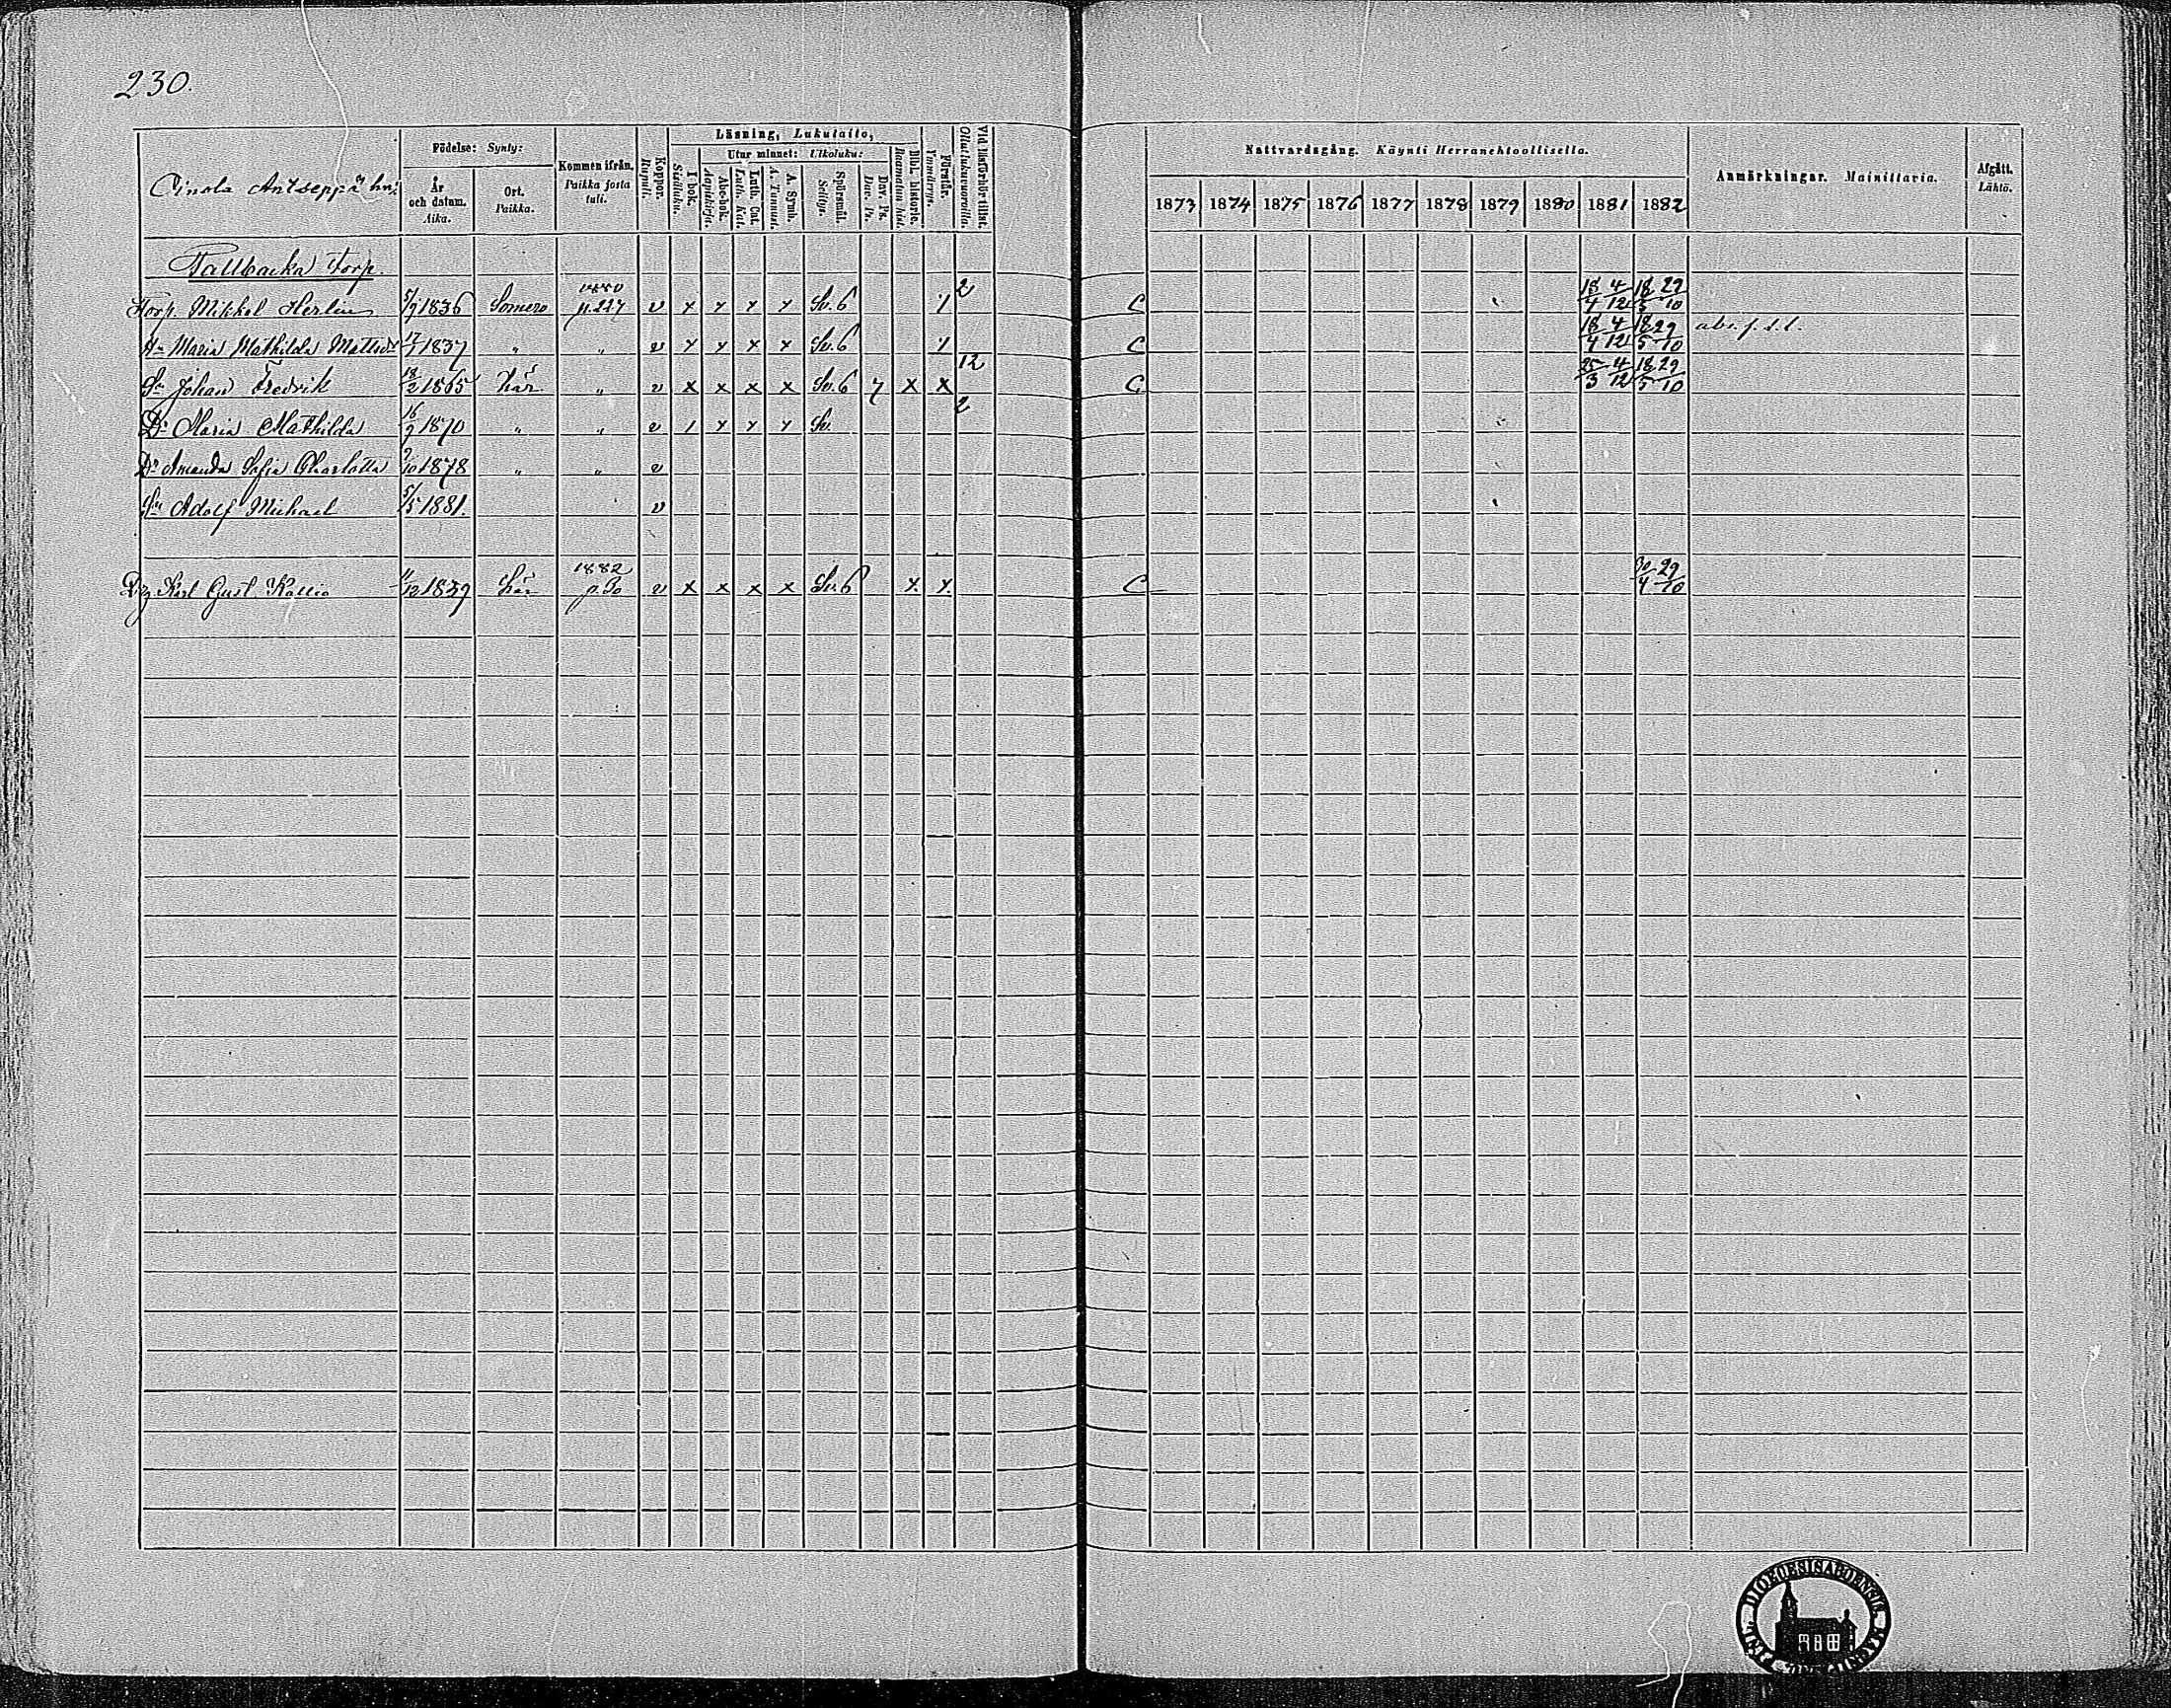 230.
Läsning, Lukutaito,
Födelse: Synty:
Kommen ifrån. Paikka josta tuli.
Koppor. Rupuli.
Utur minnet: Ulkoluku:
Bibl. historie. Raamatun hist.
Förstår. Ymmärrys.
Vid läsförhör tillst. Ollut lukuvuoroilla.
År och datum. Aika.
Ort. Paikka.
I bok. Sisäluku.
Abc-bok. Aapiskirja.
Luth. Cat. Luth. Kat.
A. Symb. A. Tunnust.
Spörsmål. Selitys.
Dav. Ps. Dav. Ps.
Nattvardsgång. Käynti Herranehtoollisella.
Anmärkningar. Mainittavia.
Afgått. Lähtö.
1873 1874 1875 1876 1877 1878 1879 1880 1881 1882
Tallbacka torp.
Torp. Mikkel Herlin 5/9 1836 Somero 1880 p. 227 v x x x x Sv. 6 1 2 C 18/4 4/12 18/5 29/10
Hu Maria Mathilda Mattsdr 17/7 1837 " " v x x x x Sv. 6 1 C 18/4 4/12 18/5 29/10 abs. f. s. l.
Sn Johan Fredrik 18/2 1865 här " v x x x x Sv. 6 7 x x 12 C 25/3 4/12 18/5 29/10
Dr Maria Mathilda 16/9 1870 " " v 1 x x x Sv. 2
Dr Amanda Sofia Charlotta 9/10 1878 " " v
Sn Adolf Michael 5/5 1881. v
Drg Karl Gust. Kallio 11/12 1839 här 1882 p. 30 v x x x x Sv. 6 x x C 30/4 29/10
DIOECESIS ABOENSIS